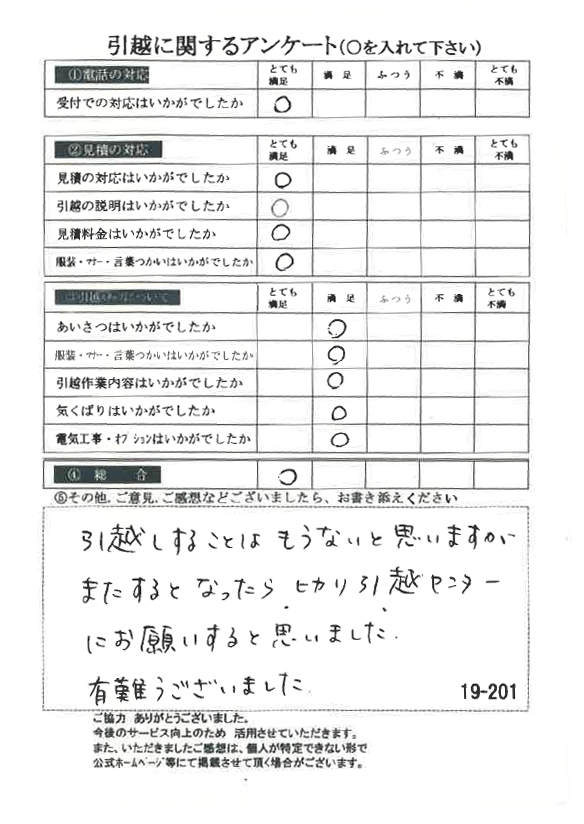 引越に関するアンケート(○を入れて下さい)
①電話の対応 とても満足 満足 ふつう 不満 とても不満
受付での対応はいかがでしたか ○
②見積の対応 とても満足 満足 ふつう 不満 とても不満
見積の対応はいかがでしたか ○
引越の説明はいかがでしたか ○
見積料金はいかがでしたか ○
服装・マナー・言葉つかいはいかがでしたか ○
とても満足 満足 ふつう 不満 とても不満
あいさつはいかがでしたか ○
服装・マナー・言葉つかいはいかがでしたか ○
引越作業内容はいかがでしたか ○
気くばりはいかがでしたか ○
電気工事・オプションはいかがでしたか ○
④総合 ○
⑤その他、ご意見、ご感想などございましたら、お書き添えください
引越しすることはもうないと思いますが
またするとなったらヒカリ引越センター
にお願いすると思いました.
有難うございました.
19-201
ご協力 ありがとうございました。
今後のサービス向上のため 活用させていただきます。
また、いただきましたご感想は、個人が特定できない形で
公式ホームページ等にて掲載させて頂く場合がございます。